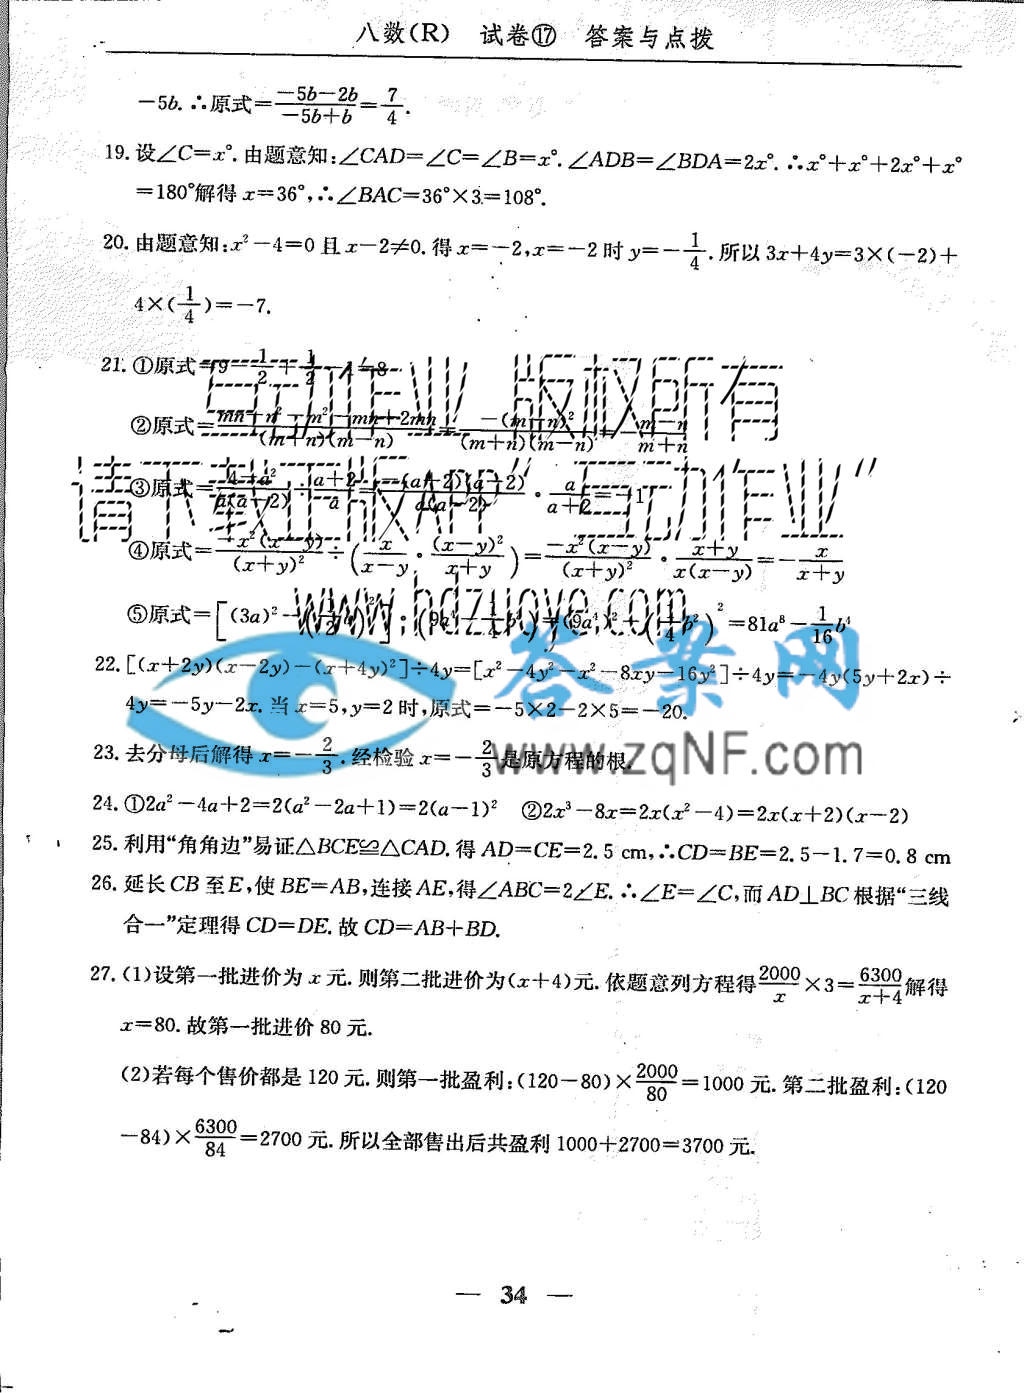 八数(R) 试卷⑰ 答案与点拨
-5b.∴原式=\frac{-5b-2b}{-5b+b}=\frac{7}{4}.
19.设∠C=x°.由题意知:∠CAD=∠C=∠B=x°.∠ADB=∠BDA=2x°.∴x°+x°+2x°+x°
=180°解得x=36°,∴∠BAC=36°×3=108°.
20.由题意知:x²-4=0且x-2≠0.得x=-2,x=-2时y=-\frac{1}{4}.所以3x+4y=3×(-2)+
4×(\frac{1}{4})=-7.
21.①原式=9-\frac{1}{2}+\frac{1}{2}-1=8
②原式=\frac{mn+n²-m²-mn+2mn}{(m+n)(m-n)}=\frac{-(m+n)²}{(m+n)(m-n)} \frac{m-n}{m+n}
③原式=\frac{4-a²}{a(a-2)}÷\frac{a+2}{a}=\frac{-(a-2)(a+2)}{a(a-2)}·\frac{a}{a+2}=-1
④原式=\frac{-x²(x-y)}{(x+y)²}÷(\frac{x}{x-y}·\frac{(x-y)²}{x+y})=\frac{-x²(x-y)}{(x+y)²}·\frac{x+y}{x(x-y)}=-\frac{x}{x+y}
⑤原式=[(3a)² ]·(9a \frac{1}{4}b²)=(9a⁴)² (\frac{1}{4}b²)²=81a⁸-\frac{1}{16}b⁴
互动作业 版权所有
请下载正版APP“互动作业”
www.hdzuoye.com
答案网
www.zqNF.com
22.[(x+2y)(x-2y)-(x+4y)²]÷4y=[x²-4y²-x²-8xy-16y²]÷4y=-4y(5y+2x)÷
4y=-5y-2x.当x=5,y=2时,原式=-5×2-2×5=-20.
23.去分母后解得x=-\frac{2}{3}.经检验x=-\frac{2}{3}是原方程的根.
24.①2a²-4a+2=2(a²-2a+1)=2(a-1)² ②2x³-8x=2x(x²-4)=2x(x+2)(x-2)
25.利用“角角边”易证△BCE≌△CAD.得AD=CE=2.5 cm,∴CD=BE=2.5-1.7=0.8 cm
26.延长CB至E,使BE=AB,连接AE,得∠ABC=2∠E.∴∠E=∠C,而AD⊥BC根据“三线
合一”定理得CD=DE.故CD=AB+BD.
27.(1)设第一批进价为x元.则第二批进价为(x+4)元.依题意列方程得\frac{2000}{x}×3=\frac{6300}{x+4}解得
x=80.故第一批进价80元.
(2)若每个售价都是120元.则第一批盈利:(120-80)×\frac{2000}{80}=1000元.第二批盈利:(120
-84)×\frac{6300}{84}=2700元.所以全部售出后共盈利1000+2700=3700元.
— 34 —